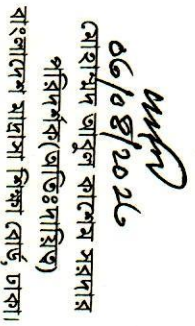 ০৬/০৪/2026
মোহাম্মদ আবুল কাশেম সরদার
পরিদর্শক(অতিঃদায়িত্ব)
বাংলাদেশ মাদ্রাসা শিক্ষা বোর্ড, ঢাকা।